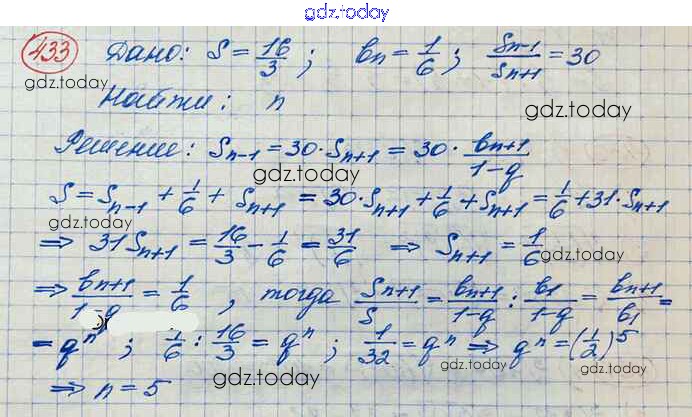 gdz.today
433 Дано: S = 16/3 ; bn = 1/6 ; Sn-1/Sn+1 = 30
gdz.today
Найти: n
gdz.today
Решение: Sn-1 = 30 · Sn+1 = 30 · bn+1/1-q
gdz.today
S = Sn-1 + 1/6 + Sn+1 = 30 · Sn+1 + 1/6 + Sn+1 = 1/6 + 31 · Sn+1
⇒ 31 Sn+1 = 16/3 - 1/6 = 31/6 ⇒ Sn+1 = 1/6
gdz.today
⇒ bn+1/1-q = 1/6 , тогда Sn+1/S = bn+1/1-q : b1/1-q = bn+1/b1 =
= q^n ; 1/6 : 16/3 = q^n ; 1/32 = q^n ⇒ q^n = (1/2)^5
gdz.today
gdz.today
⇒ n = 5
gdz.today